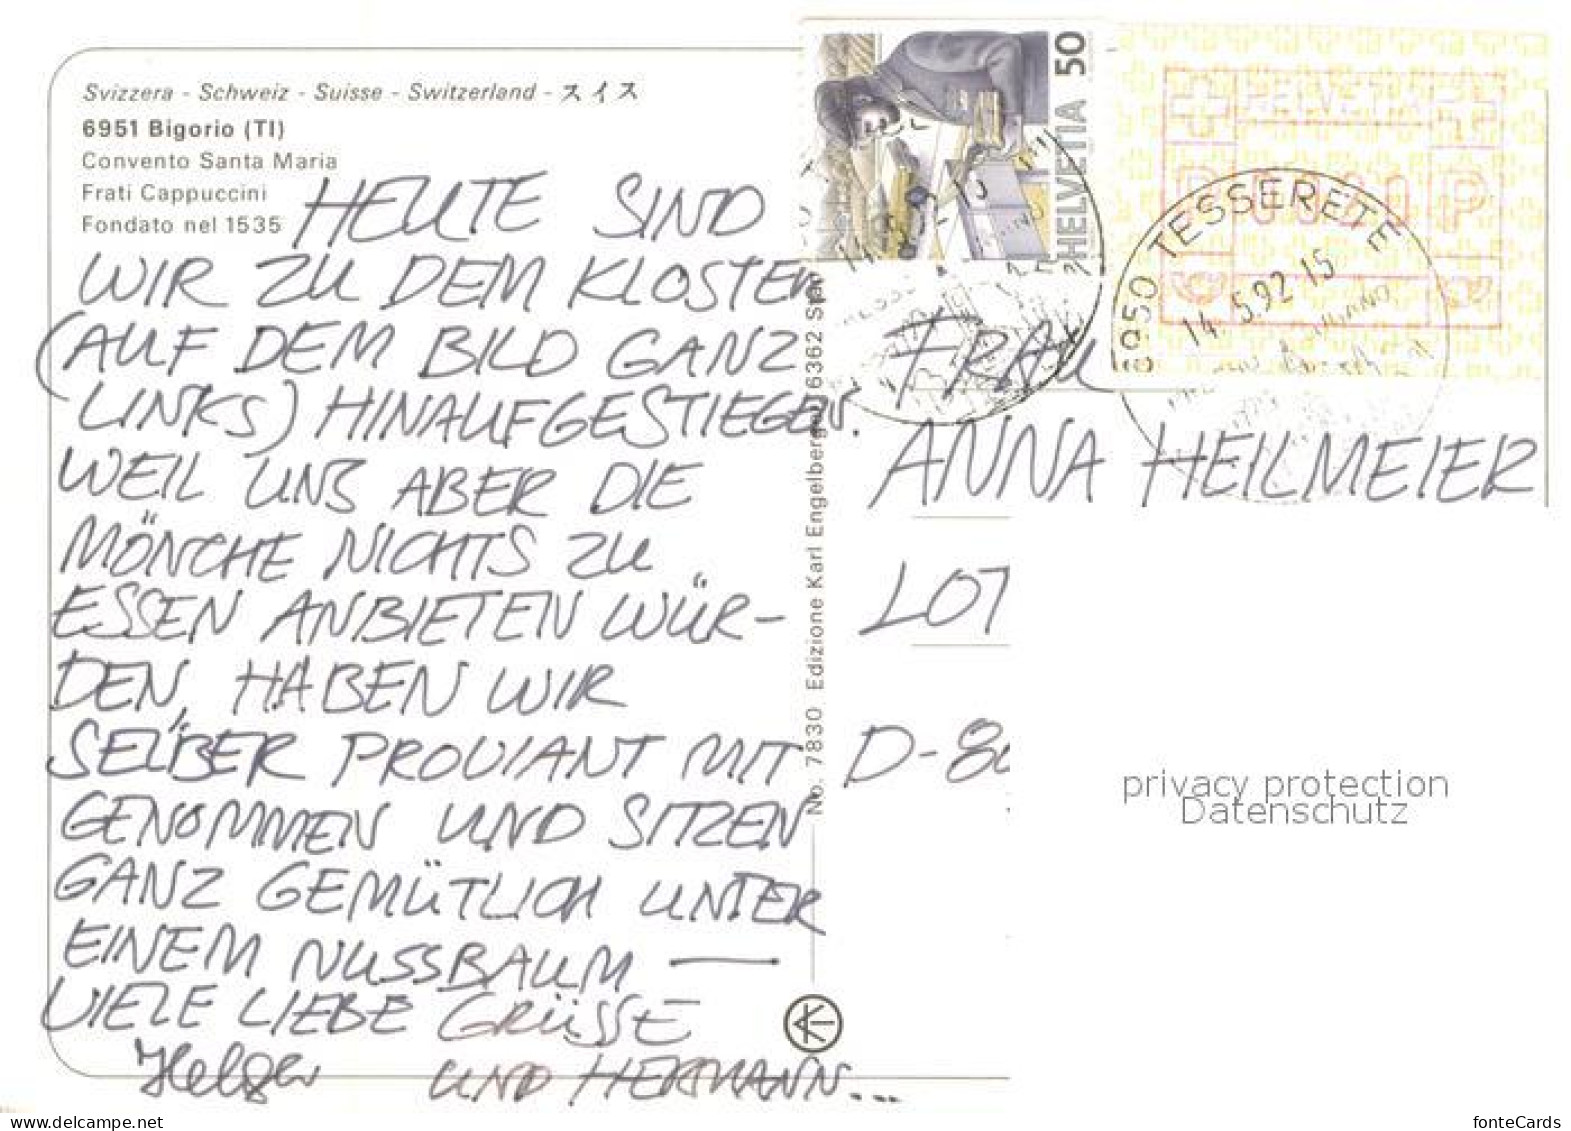 Svizzera - Schweiz - Suisse - Switzerland - スイス
6951 Bigorio (TI)
Convento Santa Maria
Frati Cappuccini
Fondato nel 1535
HEUTE SIND
WIR ZU DEM KLOSTER
(AUF DEM BILD GANZ
LINKS) HINAUFGESTIEGEN.
WEIL UNS ABER DIE
MÖNCHE NICHTS ZU
ESSEN ANBIETEN WÜR-
DEN, HABEN WIR
SELBER PROVIANT MIT
GENOMMEN UND SITZEN
GANZ GEMÜTLICH UNTER
EINEM NUSSBAUM —
VIELE LIEBE GRÜSSE
UND HERMANN...
No. 7830 Edizione Karl Engelberger, 6362
HELVETIA 50
HELVETIA
6950 TESSERETE
14.5.92 15
FRAU
ANNA HEILMEIER
LOT
D-80
privacy protection
Datenschutz
www.delcampe.net
fonteCards